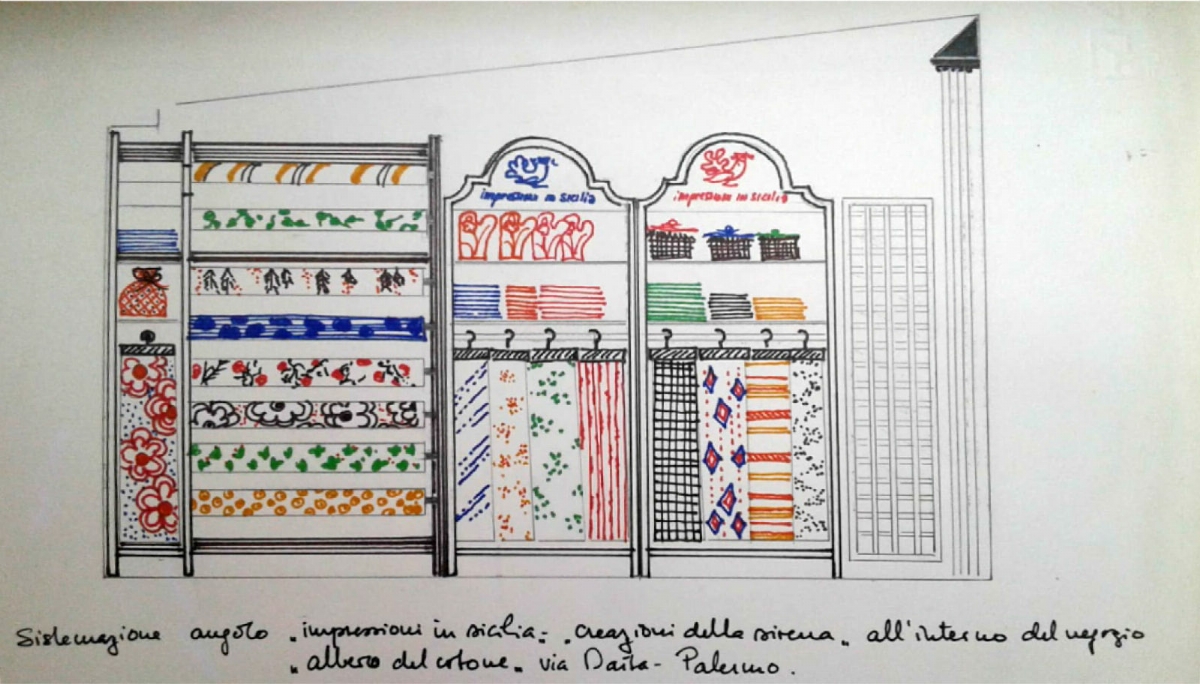 impressioni in sicilia
impressioni in sicilia
Sistemazione angolo "impressioni in sicilia" - "creazioni della sirena" all'interno del negozio
"albero del cotone" via Daita - Palermo.